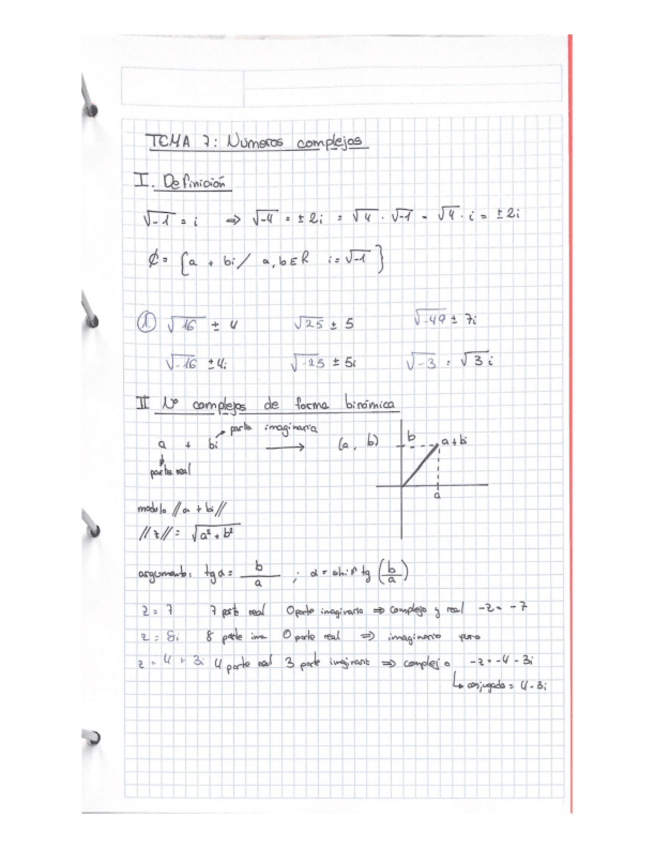 TEMA 7: Números complejos
I. Definición
√-1 = i ⇒ √-4 = ±2i = √4 · √-1 = √4 · i = ±2i
₵ = {a + bi / a, b ∈ R i = √-1}
① √16 ± 4 √25 ± 5 √-49 ± 7i
√-16 ± 4i √-25 ± 5i √-3 = √3 i
II Nº complejos de forma binómica
parte imaginaria
a + bi → (a, b) b a + bi
parte real
a
modulo //a + bi//
//z// = √a² + b²
argumento: tg α = b/a ; α = shift tg (b/a)
z = 7 7 parte real 0 parte imaginario ⇒ complejo y real -z = -7
z = 8i 8 parte ima 0 parte real ⇒ imaginario puro
z = 4 + 3i 4 parte real 3 parte imaginaria ⇒ complejo -z = -4 - 3i
↳ conjugado = 4 - 3i